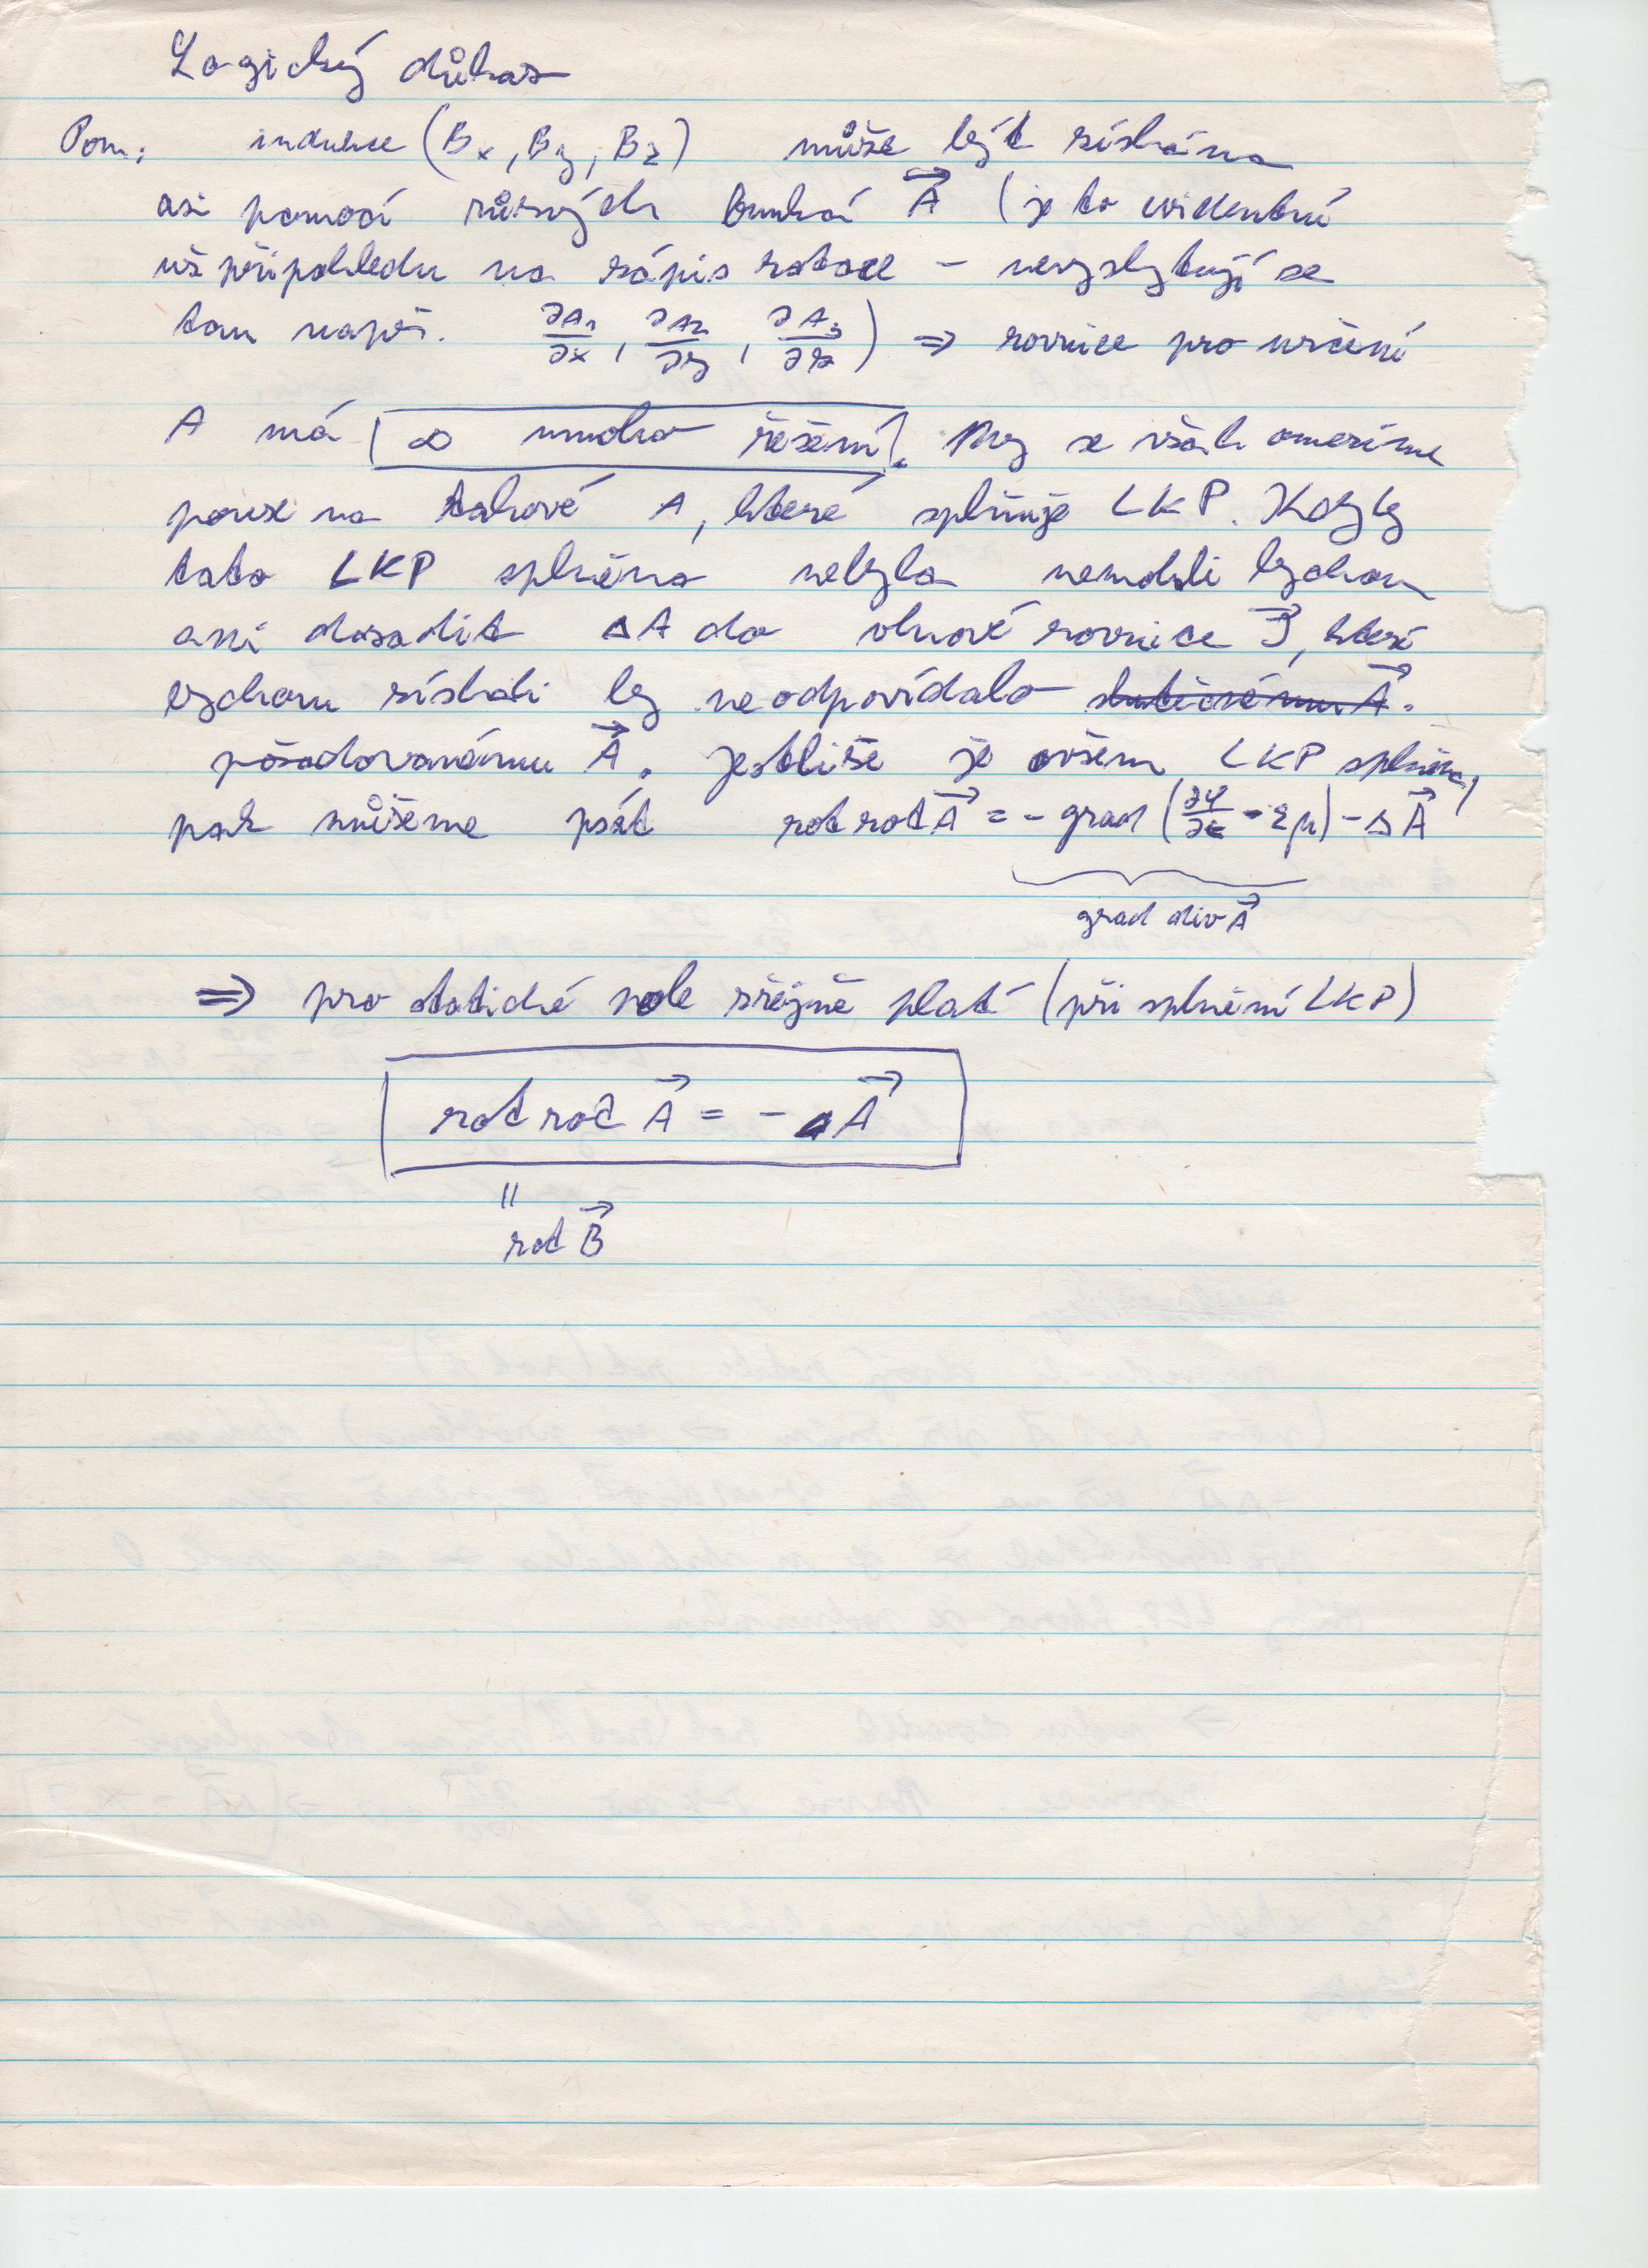 Logický důkaz
Pozn: indukce (Bx, By, Bz) může být získána
asi pomocí různých funkcí A⃗ (je to evidentní
už při pohledu na zápis rotace – nevyskytují se
tam např. ∂A₁/∂x, ∂A₂/∂y, ∂A₃/∂z) ⇒ rovnice pro určení
A má ∞ mnoho řešení. My se však omezíme
pouze na takové A, které splňuje LKP. Kdyby
tato LKP splněna nebyla nemohli bychom
ani dosadit ΔA do vlnové rovnice, které
bychom získali by neodpovídalo skutečnému A⃗.
požadovanému A⃗. Jestliže je ovšem LKP splněna,
pak můžeme psát rot rot A⃗ = - grad (∂φ/∂t · εμ) - ΔA⃗
grad div A⃗
⇒ pro statické pole zřejmě platí (při splnění LKP)
rot rot A⃗ = - ΔA⃗
||
rot B⃗